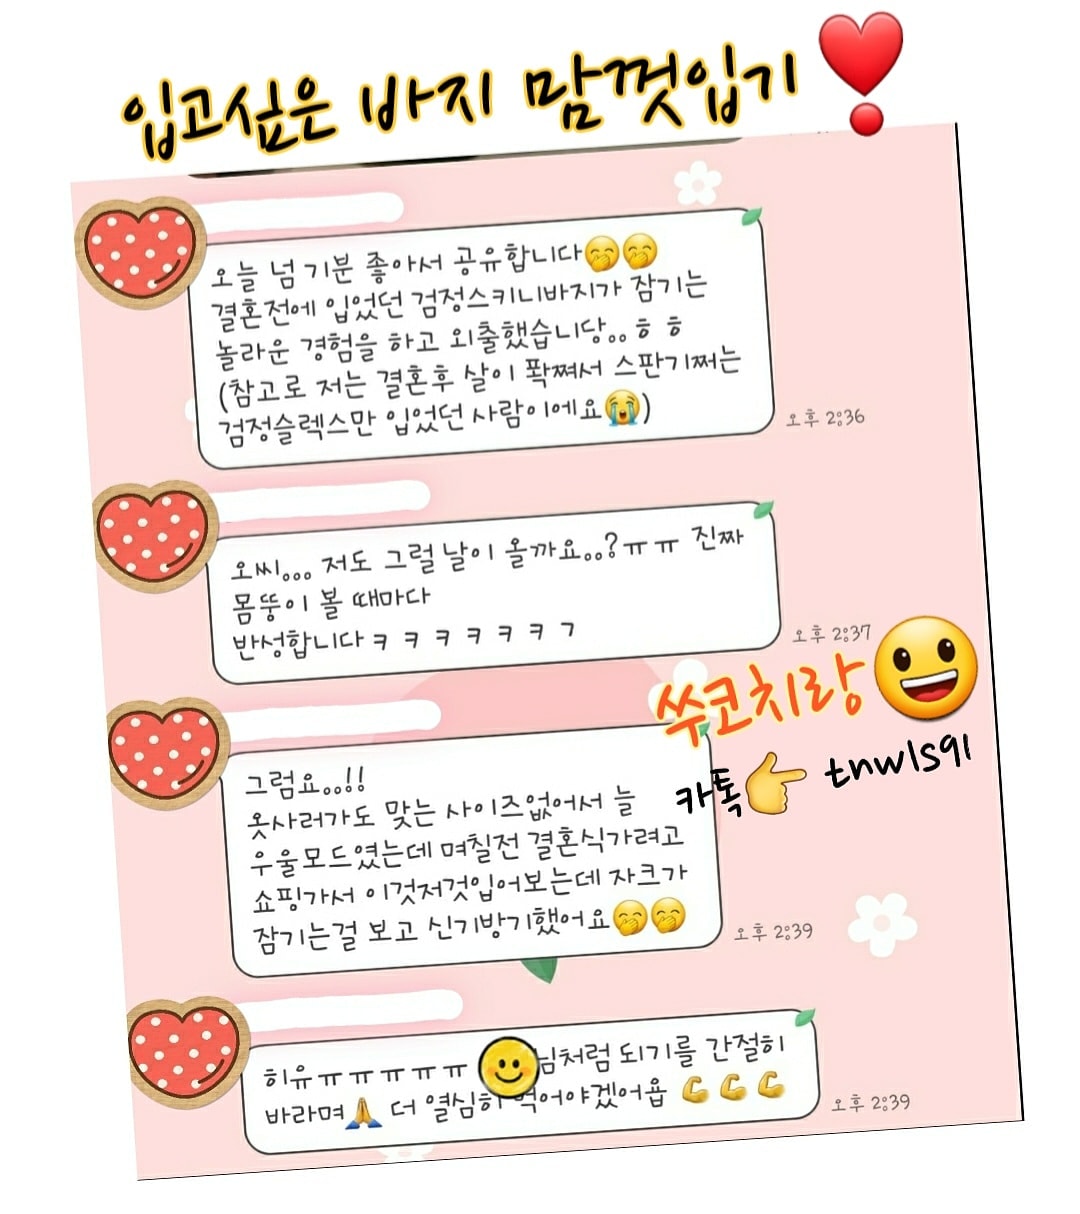 입고싶은 바지 맘껏입기
오늘 넘 기분 좋아서 공유합니다🤭🤭
결혼전에 입었던 검정스키니바지가 잠기는
놀라운 경험을 하고 외출했습니당.. ㅎ ㅎ
(참고로 저는 결혼후 살이 퐉쪄서 스판기쩌는
검정슬렉스만 입었던 사람이에요😭)
오후 2:36
오씨... 저도 그럴 날이 올까요..?ㅠㅠ 진짜
몸뚱이 볼 때마다
반성합니다ㅋㅋㅋㅋㅋㅋㄱ
오후 2:37
쑤코치랑
카톡👉 tnwls91
그럼요..!!
옷사러가도 맞는 사이즈없어서 늘
우울모드였는데 며칠전 결혼식가려고
쇼핑가서 이것저것입어보는데 자크가
잠기는걸 보고 신기방기했어요🤭🤭
오후 2:39
히유ㅠㅠㅠㅠㅠ 님처럼 되기를 간절히
바라며🙏 더 열심히 먹어야겠어욥 💪💪💪
오후 2:39